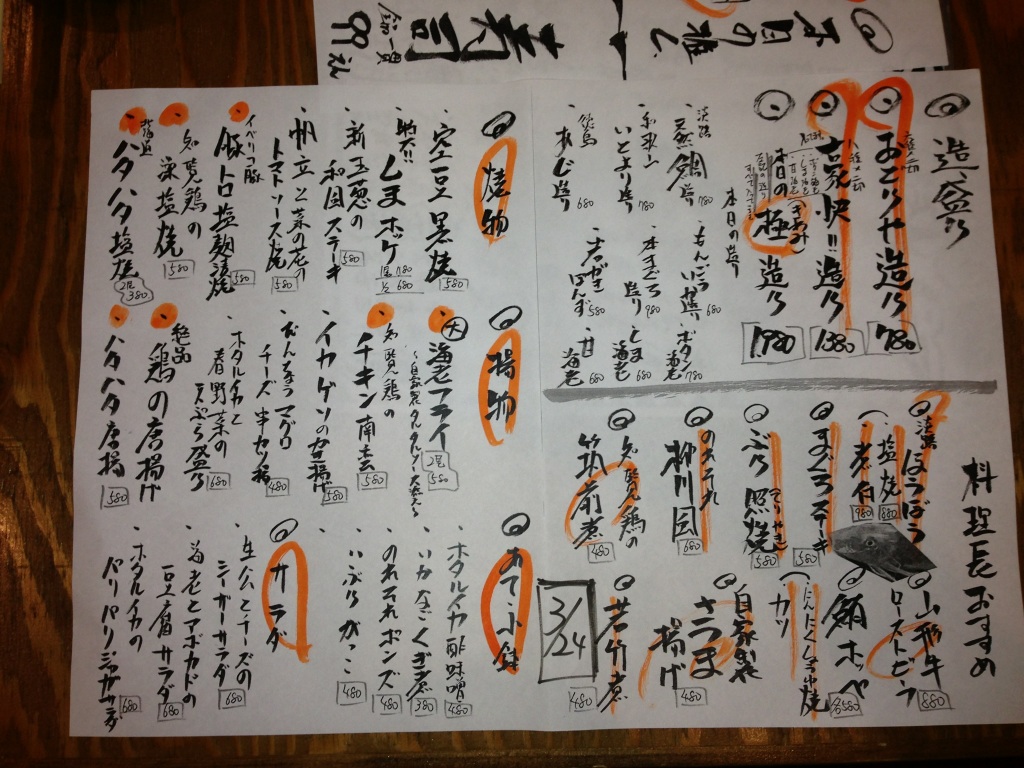 造り盛り
おこりや造り 780
豪快!!造り 1380
本日の極(きわみ)造り 1780
本日の造り
淡路
天然鯛造り 780
和歌山
いとより造り 780
徳島
あじ造り 680
もんごういか造り 680
本まぐろ造り 980
岩がきぽんず 580
ボタン海老 780
しま海老 680
甘海老 680
料理長おすすめ
淡路 ほうぼう
塩焼 880
煮付 980
まぐろステーキ 580
ぶり照焼(てりやき) 580
のれそれ
柳川風 680
知覧鶏の
筑前煮 480
山形牛
ローストビーフ 880
鮪ホッペ
にんにくしょうゆ焼
カツ
自家製
さつま
揚げ 480
若竹煮 480
3/24
焼物
空豆黒焼 580
特大!!しまホッケ
1尾 780
½ 680
新玉葱の
和風ステーキ 580
帆立と菜の花の
トマトソース焼 580
イベリコ豚
豚トロ塩麹焼 580
知覧鶏の
藻塩焼 580
北海道
ハタハタ塩焼 2尾 380
揚物
大 海老フライ 2尾 580
知覧鶏の
チキン南蛮 580
イカゲソの唐揚げ 580
びんちょうマグロ
チーズ串カツ揚 480
ホタルイカと
春野菜の
天ぷら盛り 680
絶品
鶏の唐揚げ
ハタハタ唐揚 580
あて小鉢
ホタルイカ酢味噌 480
いかなごくぎ煮 380
のれそれポンズ 480
いぶりがっこ 480
サラダ
生ハムとチーズの
シーザーサラダ 680
海老とアボカドの
豆腐サラダ 680
ホタルイカの
パリパリシーザーサラダ 680